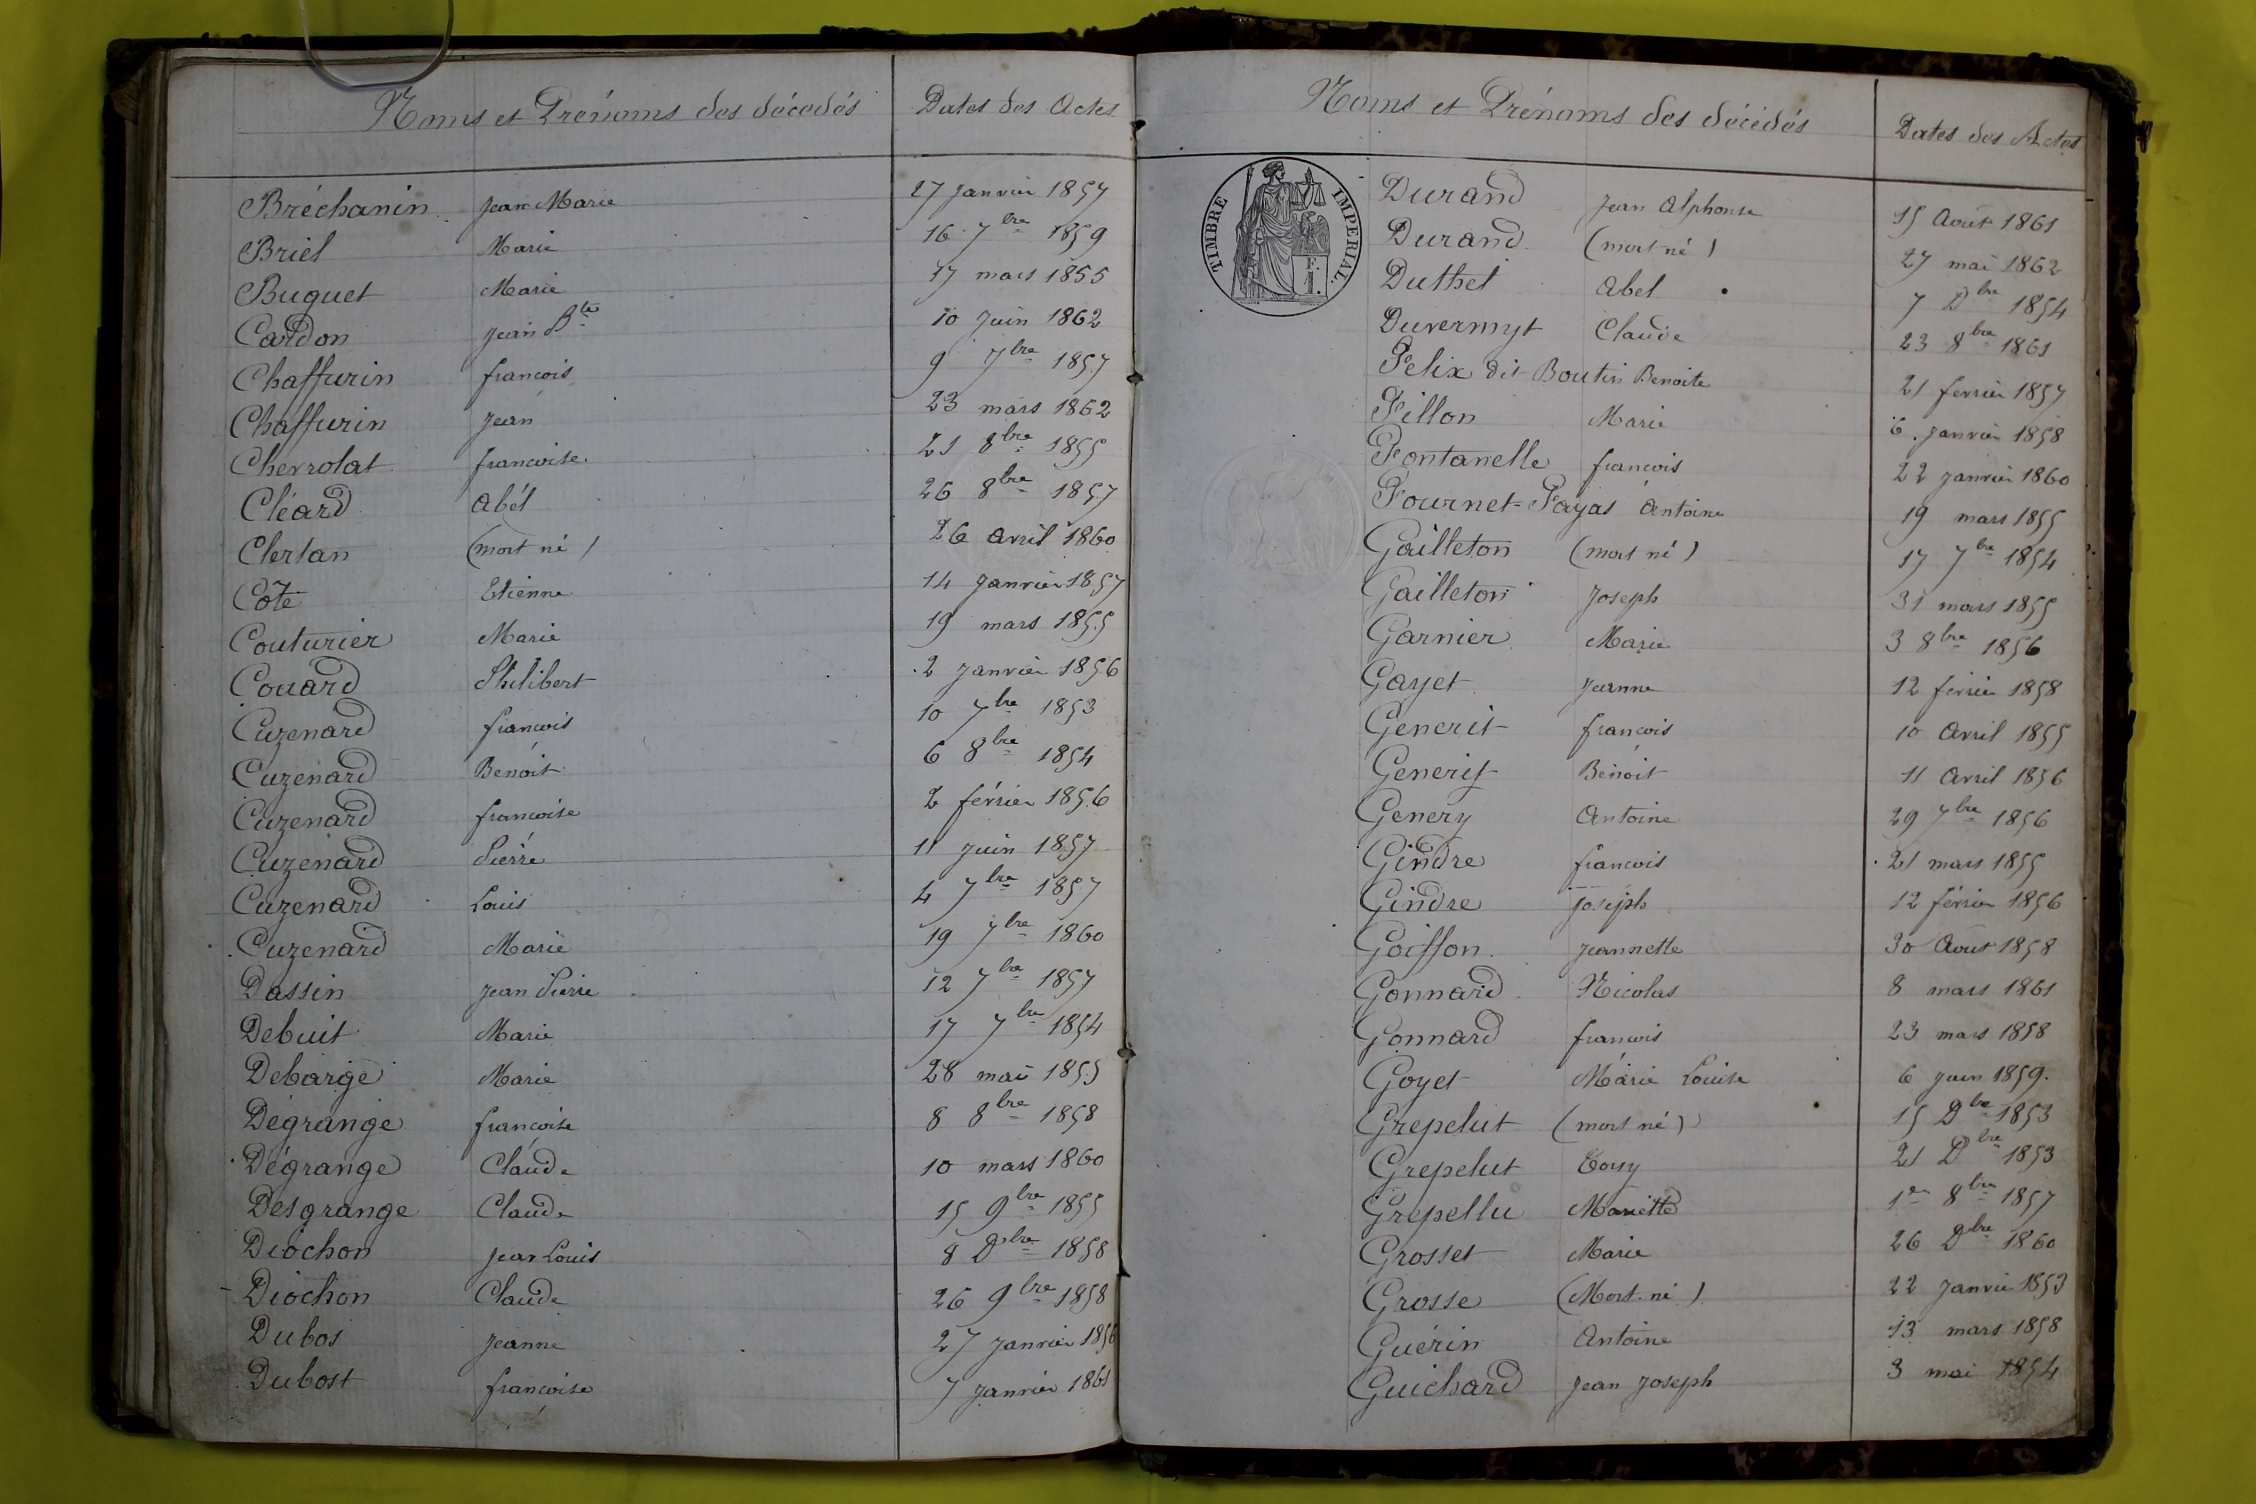 Noms et Prénoms des décédés Dates des Actes
Bréchanin Jean Marie 27 janvier 1857
Briel Marie 16 7bre 1859
Buguet Marie 17 mars 1855
Cardon Jean Bte 10 juin 1862
Chaffurin françois 9 7bre 1857
Chaffurin Jean 23 mars 1862
Chevrolat françoise 21 8bre 1855
Cléard Abél 26 8bre 1857
Clertan (mort né) 26 avril 1860
Côte Etienne 14 janvier 1857
Couturier Marie 19 mars 1855
Couard Philibert 2 janvier 1856
Cuzenard françois 10 7bre 1853
Cuzenard Benoit 6 8bre 1854
Cuzenard françoise 2 février 1856
Cuzenard Pierre 11 juin 1857
Cuzenard Louis 4 7bre 1857
Cuzenard Marie 19 7bre 1860
Dassin Jean Pierre 12 7bre 1857
Debuit Marie 17 7bre 1854
Debarge Marie 28 mai 1855
Dégrange françoise 8 8bre 1858
Dégrange Claude 10 mars 1860
Desgrange Claude 15 9bre 1855
Diochon Jean Louis 8 Dbre 1858
Diochon Claude 26 9bre 1858
Dubos Jeanne 27 janvier 1856
Dubost françoise 7 janvier 1861
Noms et Prénoms des décédés Dates des Actes
TIMBRE IMPERIAL.
1 F.
Durand Jean Alphonse 15 Août 1861
Durand (mort né) 27 mai 1862
Duthel Abel 7 Dbre 1854
Duvermyt Claude 23 8bre 1861
Felix dit Boutin Benoite 21 fevrier 1857
Fillon Marie 6 janvier 1858
Fontanelle françois 22 janvier 1860
Fournet-Fayas Antoine 19 mars 1855
Gailleton (mort né) 17 7bre 1854
Gailleton Joseph 31 mars 1855
Garnier Marie 3 8bre 1856
Gayet Jeanne 12 fevrier 1858
Generit françois 10 Avril 1855
Generis Benoit 11 Avril 1856
Genery Antoine 29 7bre 1856
Gindre françois 21 mars 1855
Gindre Joseph 12 février 1856
Goiffon Jeannette 30 Août 1858
Gonnard Nicolas 8 mars 1861
Gonnard françois 23 mars 1858
Goyet Marie Louise 6 juin 1859.
Grepelut (mort né) 15 Dbre 1853
Grepelut Tony 21 Dbre 1853
Grepellu Mariette 1er 8bre 1857
Grosset Marie 26 Dbre 1860
Grosse (Mort né) 22 Janvier 1853
Guérin Antoine 13 mars 1858
Guichard Jean Joseph 3 mai 1854